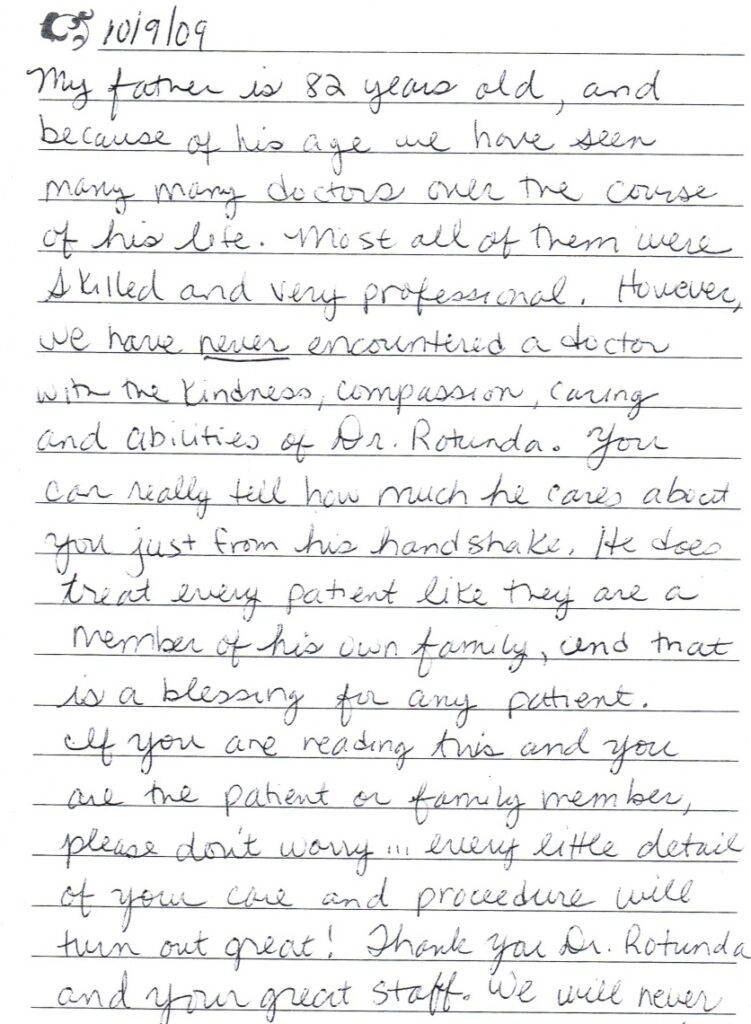 10/9/09
My father is 82 years old, and
because of his age we have seen
many many doctors over the course
of his life. Most all of them were
skilled and very professional. However,
we have never encountered a doctor
with the kindness, compassion, caring
and abilities of Dr. Rotunda. You
can really tell how much he cares about
you just from his handshake. He does
treat every patient like they are a
member of his own family, and that
is a blessing for any patient.
If you are reading this and you
are the patient or family member,
please don't worry... every little detail
of your care and proceedure will
turn out great! Thank you Dr. Rotunda
and your great staff. We will never